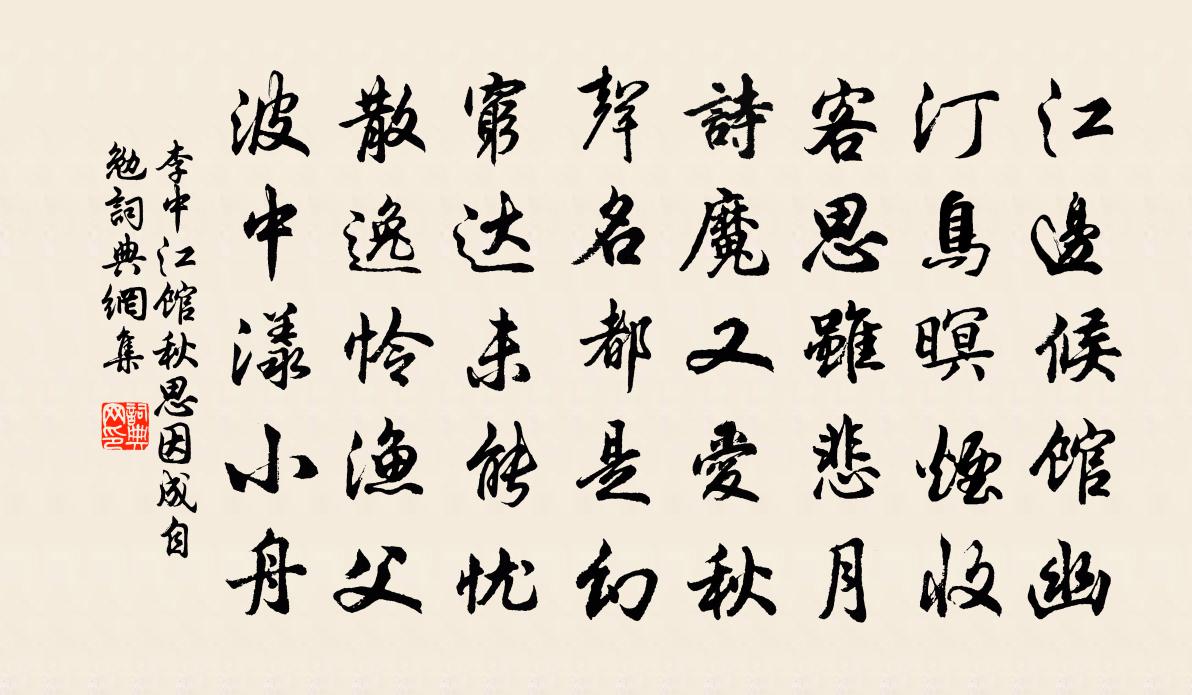 江邊候馆幽
汀鳥暝煙收
客思雖悲月
詩魔又愛秋
聲名都是幻
窮达未能忧
散逸怜漁父
波中漾小舟
李中江馆秋思因成自
勉詞典網集
詞典网印